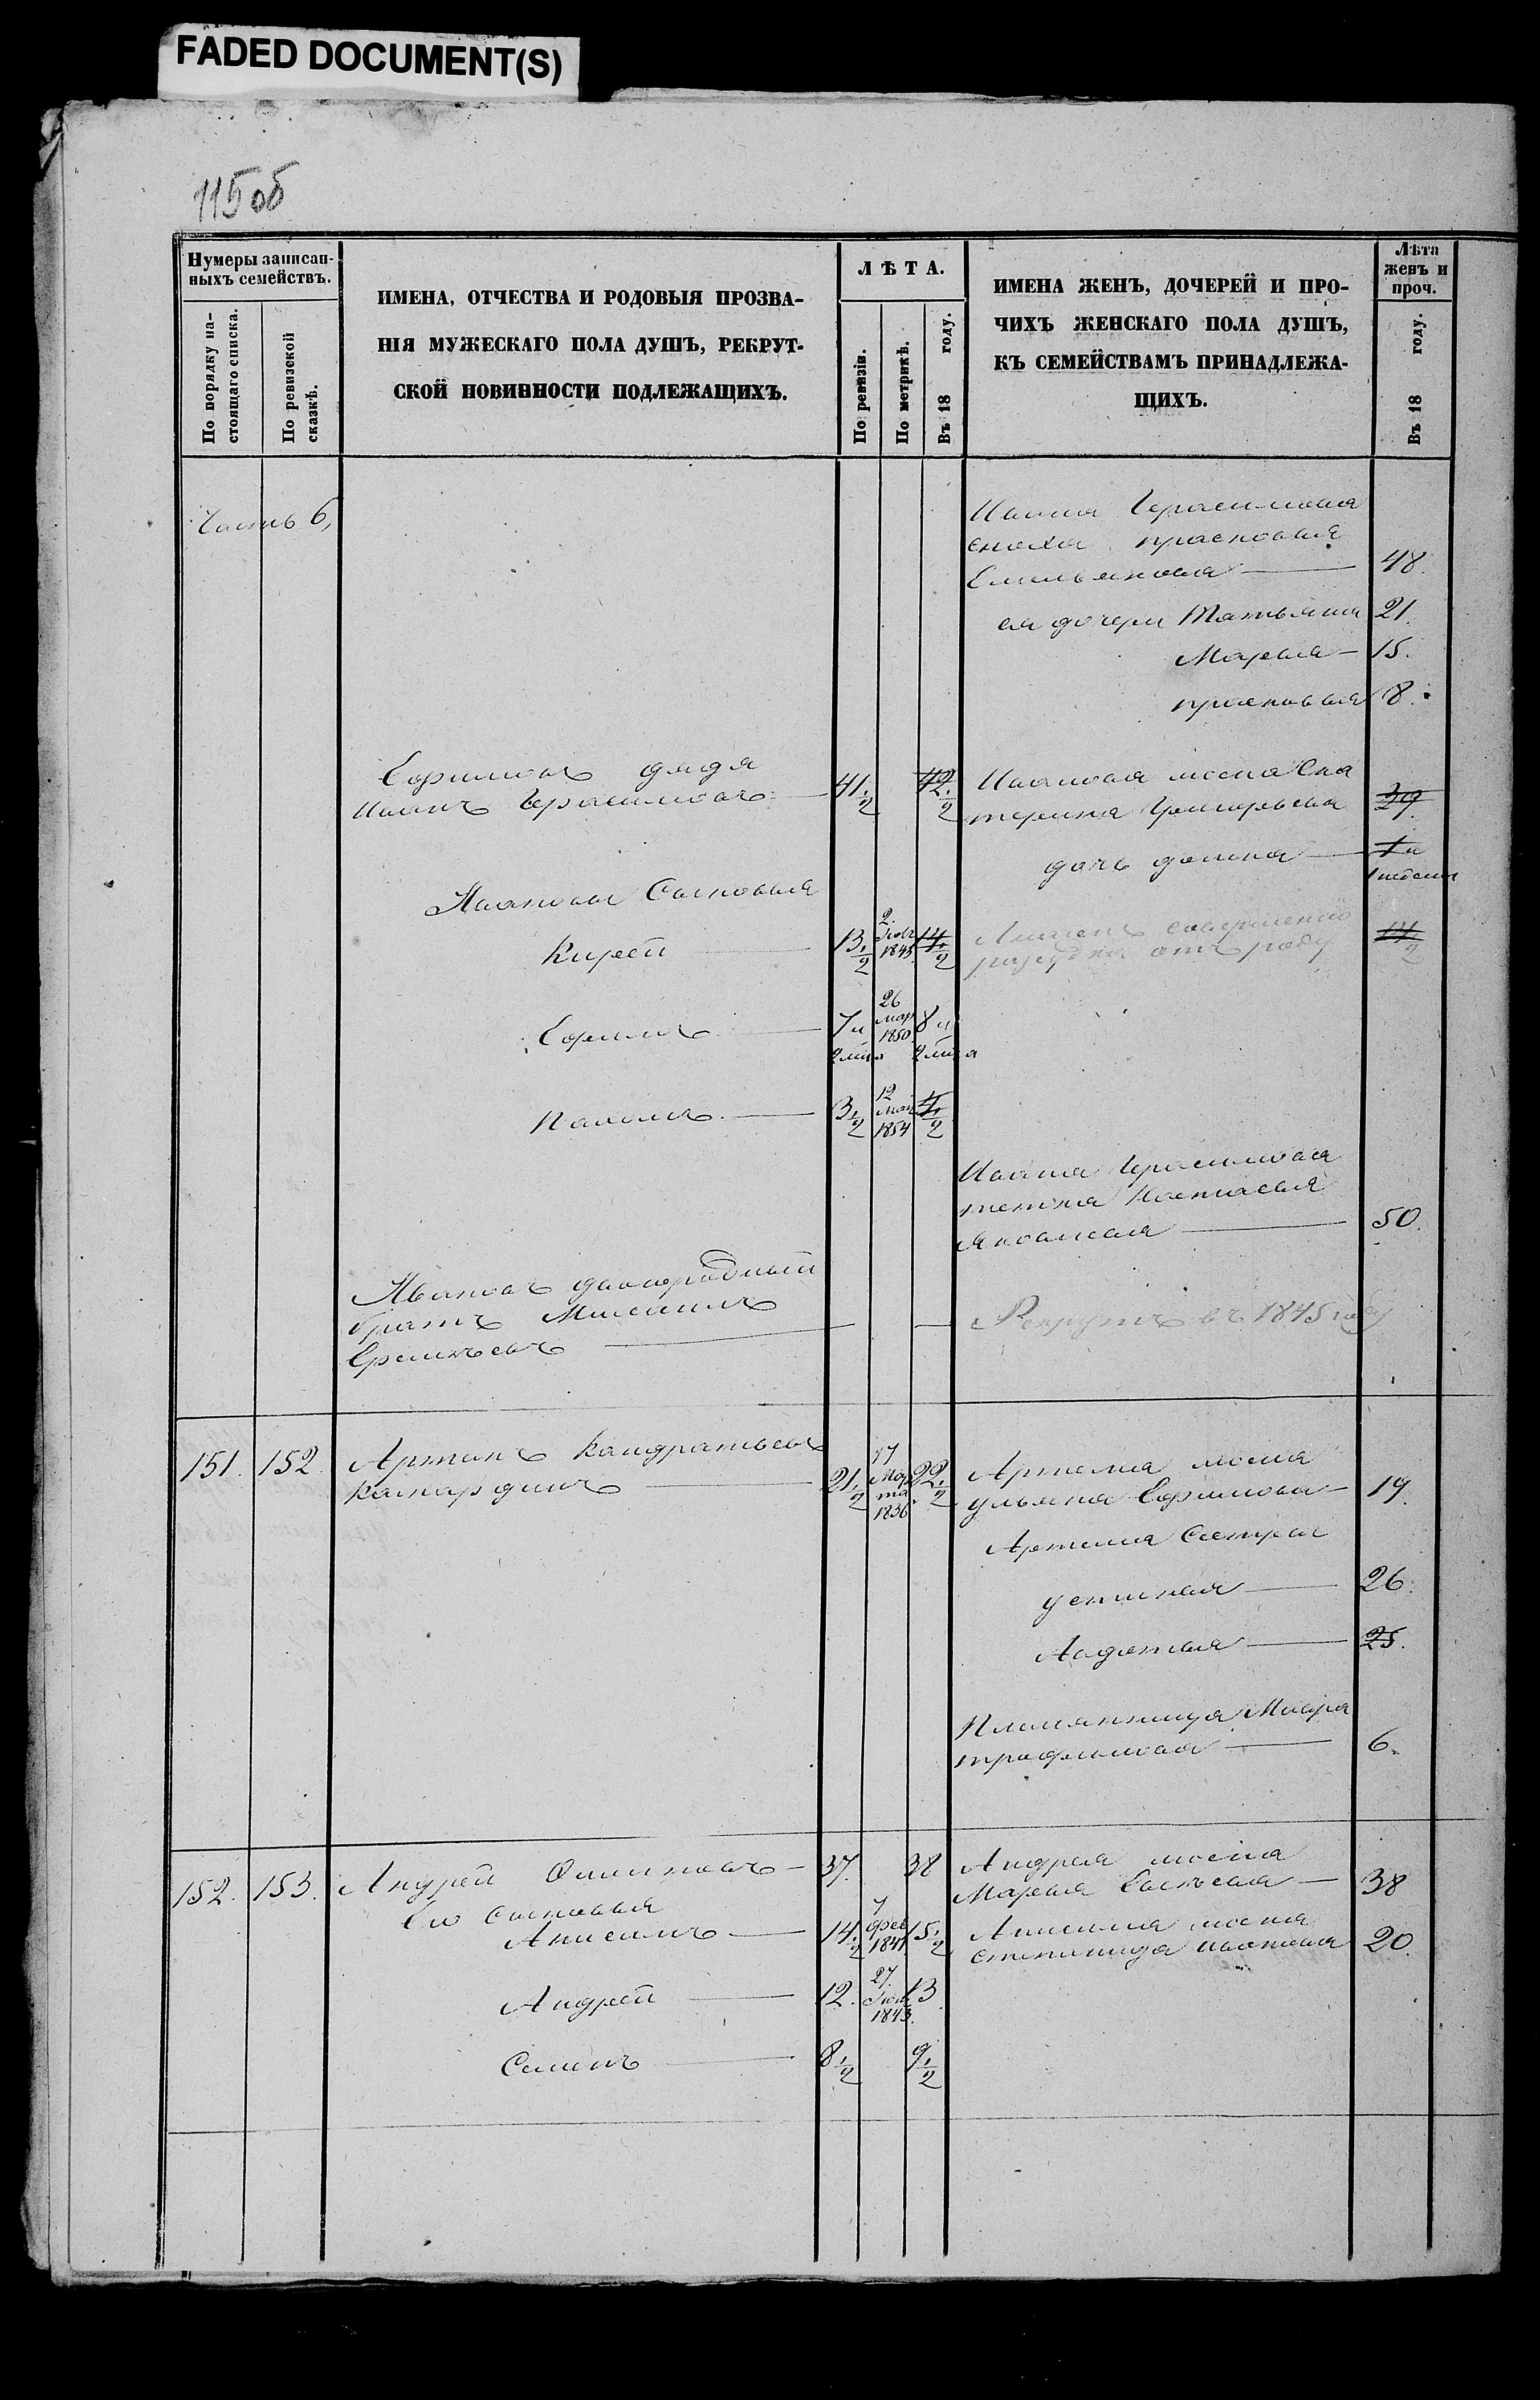 FADED DOCUMENT(S)
115 об
Нумеры записан-
ныхъ семействъ.
По порядку на-
стоящаго списка.
По ревизской
сказкѣ.
ИМЕНА, ОТЧЕСТВА И РОДОВЫЯ ПРОЗВА-
НІЯ МУЖЕСКАГО ПОЛА ДУШЪ, РЕКРУТ-
СКОЙ ПОВИННОСТИ ПОДЛЕЖАЩИХЪ.
ЛѢТА.
По ревизіи.
По метрикѣ.
Въ 18 году.
ИМЕНА ЖЕНЪ, ДОЧЕРЕЙ И ПРО-
ЧИХЪ ЖЕНСКАГО ПОЛА ДУШЪ,
КЪ СЕМЕЙСТВАМЪ ПРИНАДЛЕЖА-
ЩИХЪ.
Лѣта
женъ и
проч.
Въ 18 году.
Часть 6,
Ивана Герасимова
сноха прасковья
Емельянова — 48.
ея дочери Татьяна 21.
Марья — 15.
прасковья 8.
Ефимовъ дядя
Иванъ Герасимовъ — 41 1/2 42 1/2
Иванова жена Ека
терина Григорьева 39
дочь домна — 1 и
1 неделя
Ивановы Сыновья
Кирей — 13 1/2 2 1845 14 1/2
совершенно
разсудка отъ роду 14 1/2
Ефимъ — 7 и 26 мар 1850 8 и
Пахомъ — 3 1/2 12 1854 4 1/2
Ивана Герасимова
тетка Настасья
Яковлева — 50.
Ивановъ двоюродный
братъ
Еремѣевъ —
Рекрутъ въ 1845 году
151. 152. Артемъ Кандратьевъ
Камардинъ — 21 1/2 17 Мар
та 1836 22 1/2
Артема жена
ульяна Ефимова — 19.
Артема Сестры
устинья — 26.
Авдотья — 25.
Племянница Мавра
трафимова — 6.
152. 153. Андрей — 37. 38
Андрея жена
Марья — 38
Его сыновья
Анисимъ — 14 1/2 7 Фев 1841 15 1/2
Анисима жена
степанида иванова 20.
Андрей — 12. 27. 1843. 13
Семенъ — 8 1/2 9 1/2